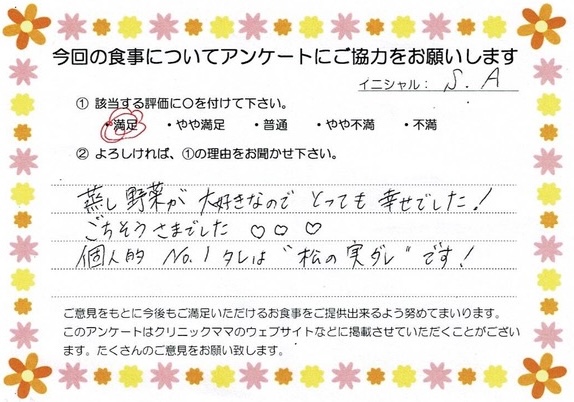 今回の食事についてアンケートにご協力をお願いします
イニシャル： S. A
① 該当する評価に○を付けて下さい。
・満足 ・やや満足 ・普通 ・やや不満 ・不満
② よろしければ、①の理由をお聞かせ下さい。
蒸し野菜が 大好きなので とっても 幸せでした！
ごちそうさまでした ♡ ♡ ♡
個人的 No.1 タレは “松の実ダレ” です！
ご意見をもとに今後もご満足いただけるお食事をご提供出来るよう努めてまいります。
このアンケートはクリニックママのウェブサイトなどに掲載させていただくことがござい
ます。たくさんのご意見をお願い致します。